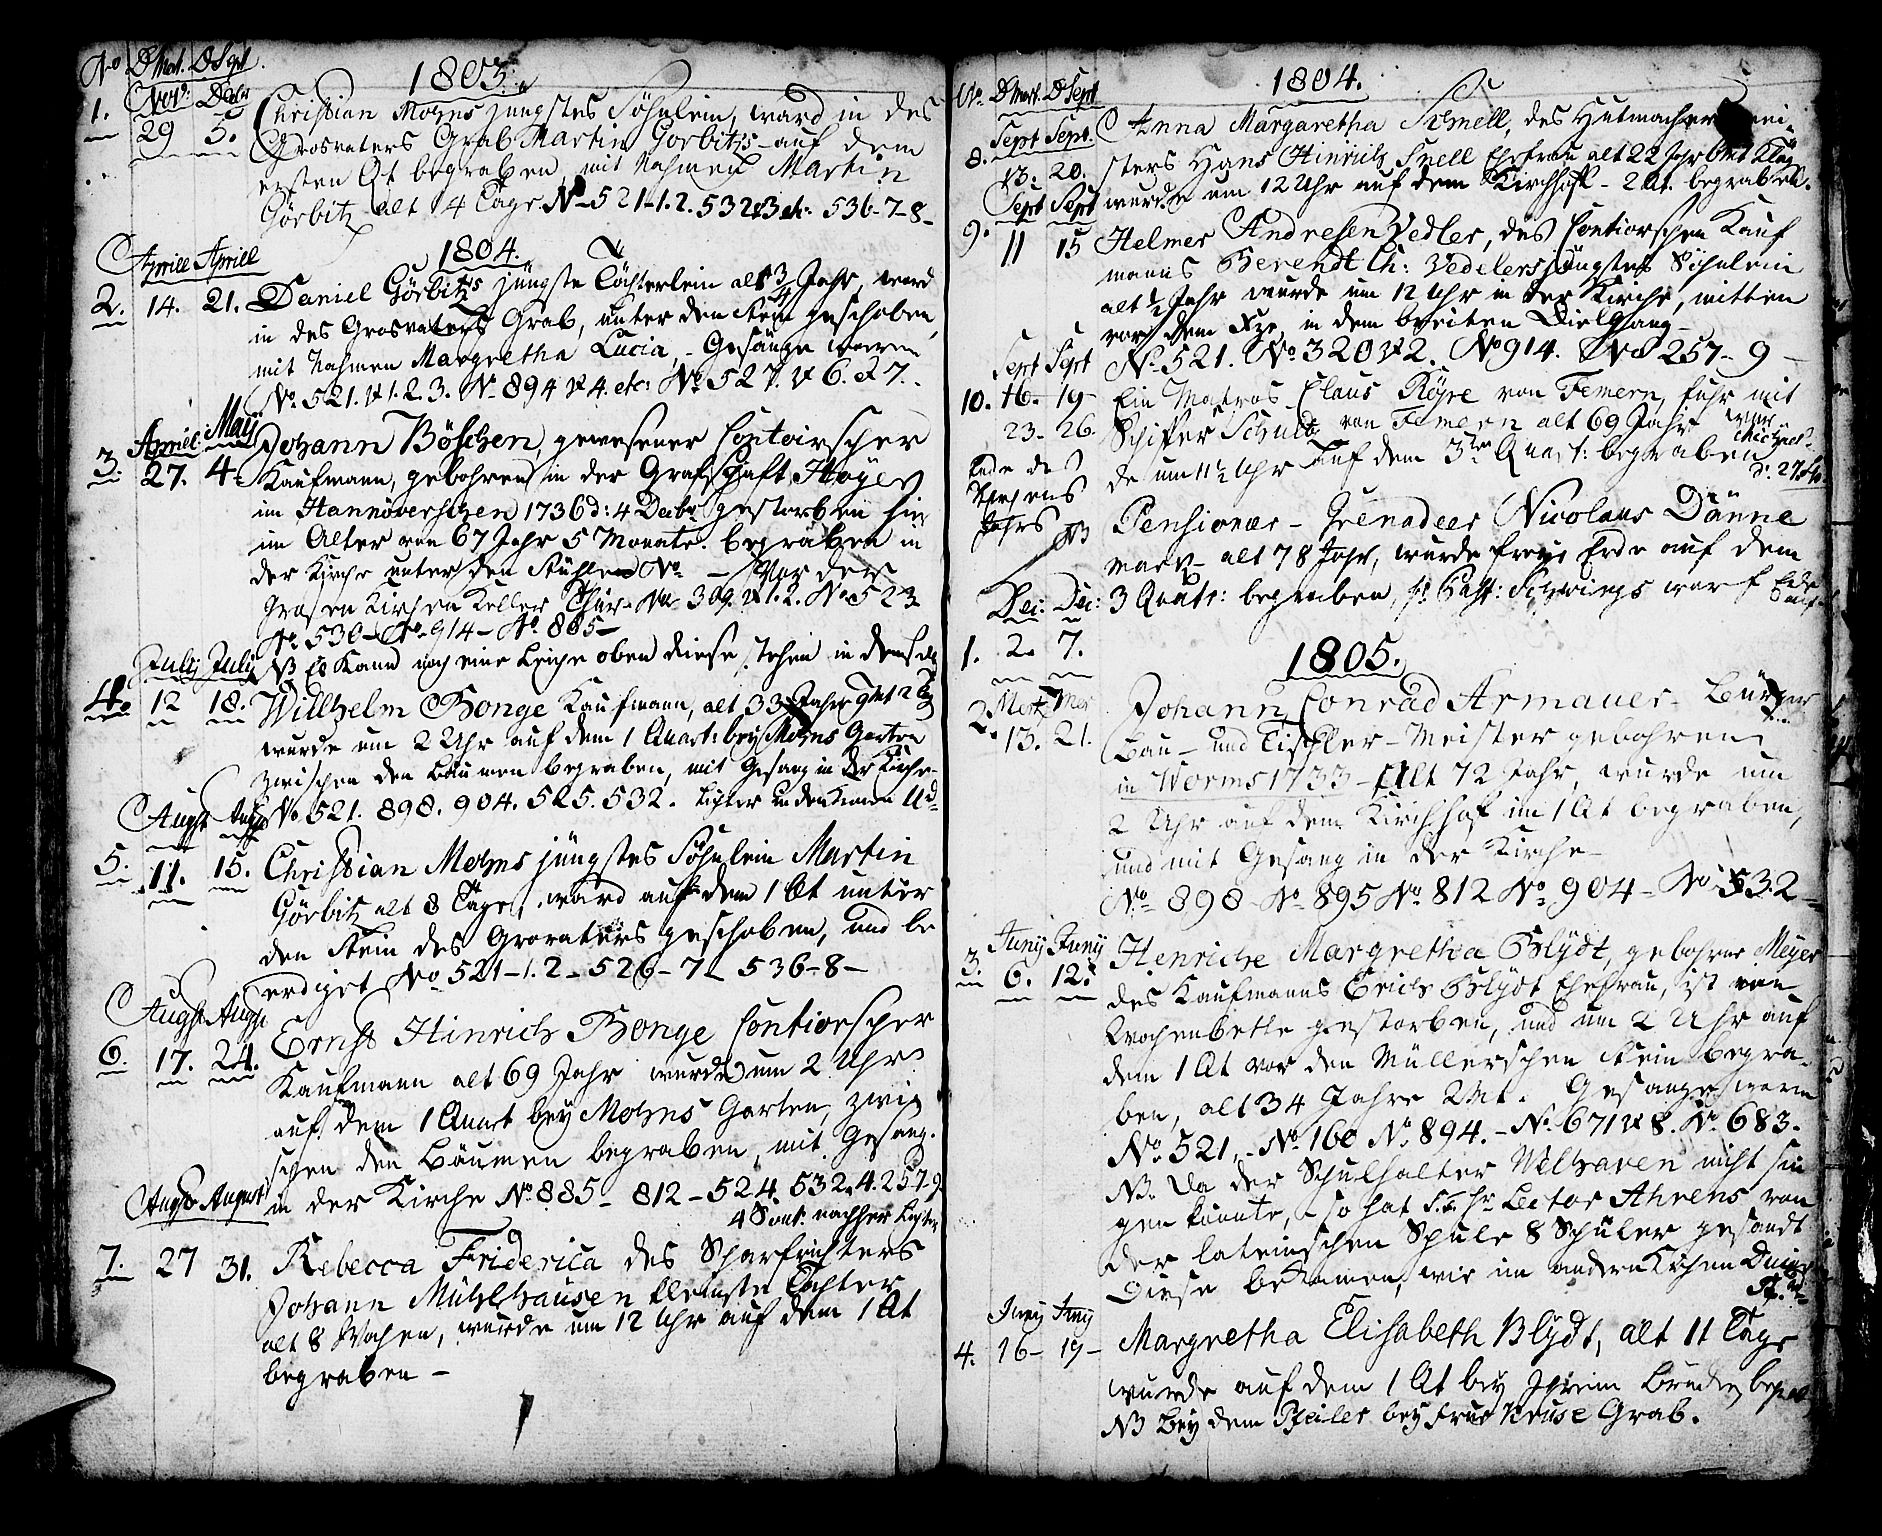 No D Mort. D Sept.
1803.
1. Novr: Decbr
29 5. Christian Mohns jüngstes Söhnlein, ward in des
Grosvaters Grab Martin Görbitz - auf dem
ersten Qt begraben, mit Nahmen Martin
Görbitz alt 14 Tage No 521-1.2. 532 & 3 etc: 536-7-8-
1804.
Aprill Aprill
2. 14. 21. Daniel Görbitz's jüngste Töchterlein alt 3/4 Jahr, ward
in des Grosvaters Grab, unter den Stein geschoben,
mit Nahmen Margretha Lucia, - Gesänge waren
No. 521. & 1.2.3. No 894 & 4. etc: No 527. & 6. & 7.
Aprill: Maij
3. 27. 4. Johann Böschen, gewesener Contoirscher
Kaufmann, gebohren in der Grafschaft Hoyer
im Hannöverschen 1736 d: 4 Decbr gestorben hier
im Alter von 67 Jahr 5 Monate. begraben in
der Kirche unter den Stühlen No - Vor dem
Grosen Kirchen Keller Thür - No 309. & 1.2. No 523
No. 530 - No 914 - No. 805 -
NB Es kann noch eine Leiche oben diese stehen in demselb
July July
4. 12 18. Willhelm Bonge Kaufmann, alt 33 Jahr 9 Mt 2 Tg
wurde um 2 Uhr auf dem 1 Quart: bey Mohns Garten
zwischen den Bäumen begraben, mit Gesang in der Kirche
No. 521. 898. 904. 525. 532. Lichter in den Kronen
Augst Augst
5. 11. 15. Christian Mohns jüngstes Söhnlein Martin
Görbitz alt 8 Tage, ward auf dem 1 Qt unter
den Stein des Grovaters geschoben, und be
erdiget No 521-1.2-526-7-536-8-
Augst Augst
6. 17. 24. Ernst Hinrich Bonge Contiorscher
Kaufmann alt 69 Jahr wurde um 2 Uhr
auf dem 1 Quart bey Mohns Garten, zwi
schen den Bäumen begraben, mit Gesang
in der Kirche No. 885 - 812 - 524. 532. 4. 257-9
4 Sont. nachher Lichter
Augst August
7. 27 31. Rebecca Friderica des Scharfrichters
Johann Mühlhausen kleinste Tochter
alt 8 Wochen, wurde um 12 Uhr auf dem 1 Qt
begraben -
No. D Mort. D Sept
1804.
Sept Sept.
8. 13. 20. Anna Margaretha Snell, des Hutmacher Mei
sters Hans Hinrich Snell Ehefrau alt 22 Jahr
wurde um 12 Uhr auf dem Kirchhoff - 2 Qt. begraben.
Sept Sept
9. 11 15 Helmer Andresen Vedler, des Contiorschen Kauf
manns Berendt Ch: Vedelers jüngstes Söhnlein
alt 1/2 Jahr wurde um 12 Uhr in der Kirche, mitten
vor dem in dem breiten Dielgang -
No. 521. No. 320 & 2. No 914. No 257-9 -
Sept Sept
10. 16. 19- Ein Matros Claus Röper von Femern, fuhr mit
23-26. Schiffer Schult von Femern alt 69 Jahr wur
de um 11 1/2 Uhr auf dem 3ten Quart: begraben
Ende des
Kirchen
Jahrs
NB Pensionær - Grenadeer Nicolaus Dänne
mark - alt 78 Jahr, wurde freye Erde auf dem
3 Quart: begraben, warf Erde
Dec: Dec:
1. 2. 7.
1805.
Mertz Mer
2. 13. 21. Johann Conrad Armauer - Bürger
Bau - und Tischler - Meister gebohren
in Worms 1733 - Alt 72 Jahr, wurde um
2 Uhr auf dem Kirchhof im 1 Qt begraben,
und mit Gesang in der Kirche -
No 898 - No 895 No. 812 No. 904 - No. 532 -
Juny Juny
3. 6. 12. Henriche Margretha Blydt, gebohrne Meyer
des Kaufmanns Erich Blydt Ehefrau, ist von
Wochenbette gestorben, und um 2 Uhr auf
dem 1 Qt vor den Müllerschen Stein begra-
ben, alt 34 Jahre 2 Mt. Gesänge waren
No. 521, - No. 160 No. 894. - No. 671 & 8. No. 683.
NB. Da der Schulhalter Welhaven nicht sin
gen konnte, so hat Hr Lector Ahrens von
der lateinschen Schule 8 Schüler gesandt
Diese bekamen, wie in andern Kirchen
Juny Juny
4. 16- 19- Margretha Elisabeth Blydt, alt 11 Tage
wurde auf dem 1 Qt bey Ihrem Bruder
NB Bey dem Pfeiler bey Frue Kruse Grab.